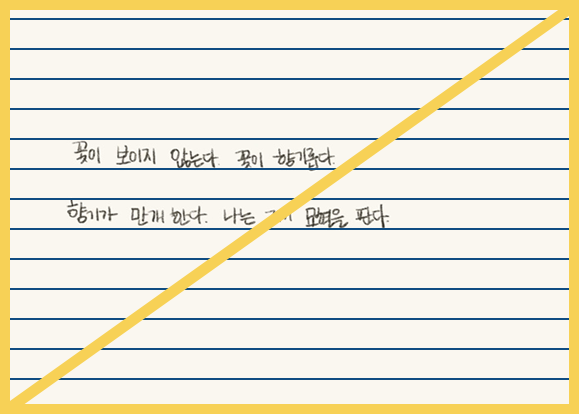 꽃이 보이지 않는다. 꽃이 향기롭다.
향기가 만개한다. 나는 묘혈을 판다.